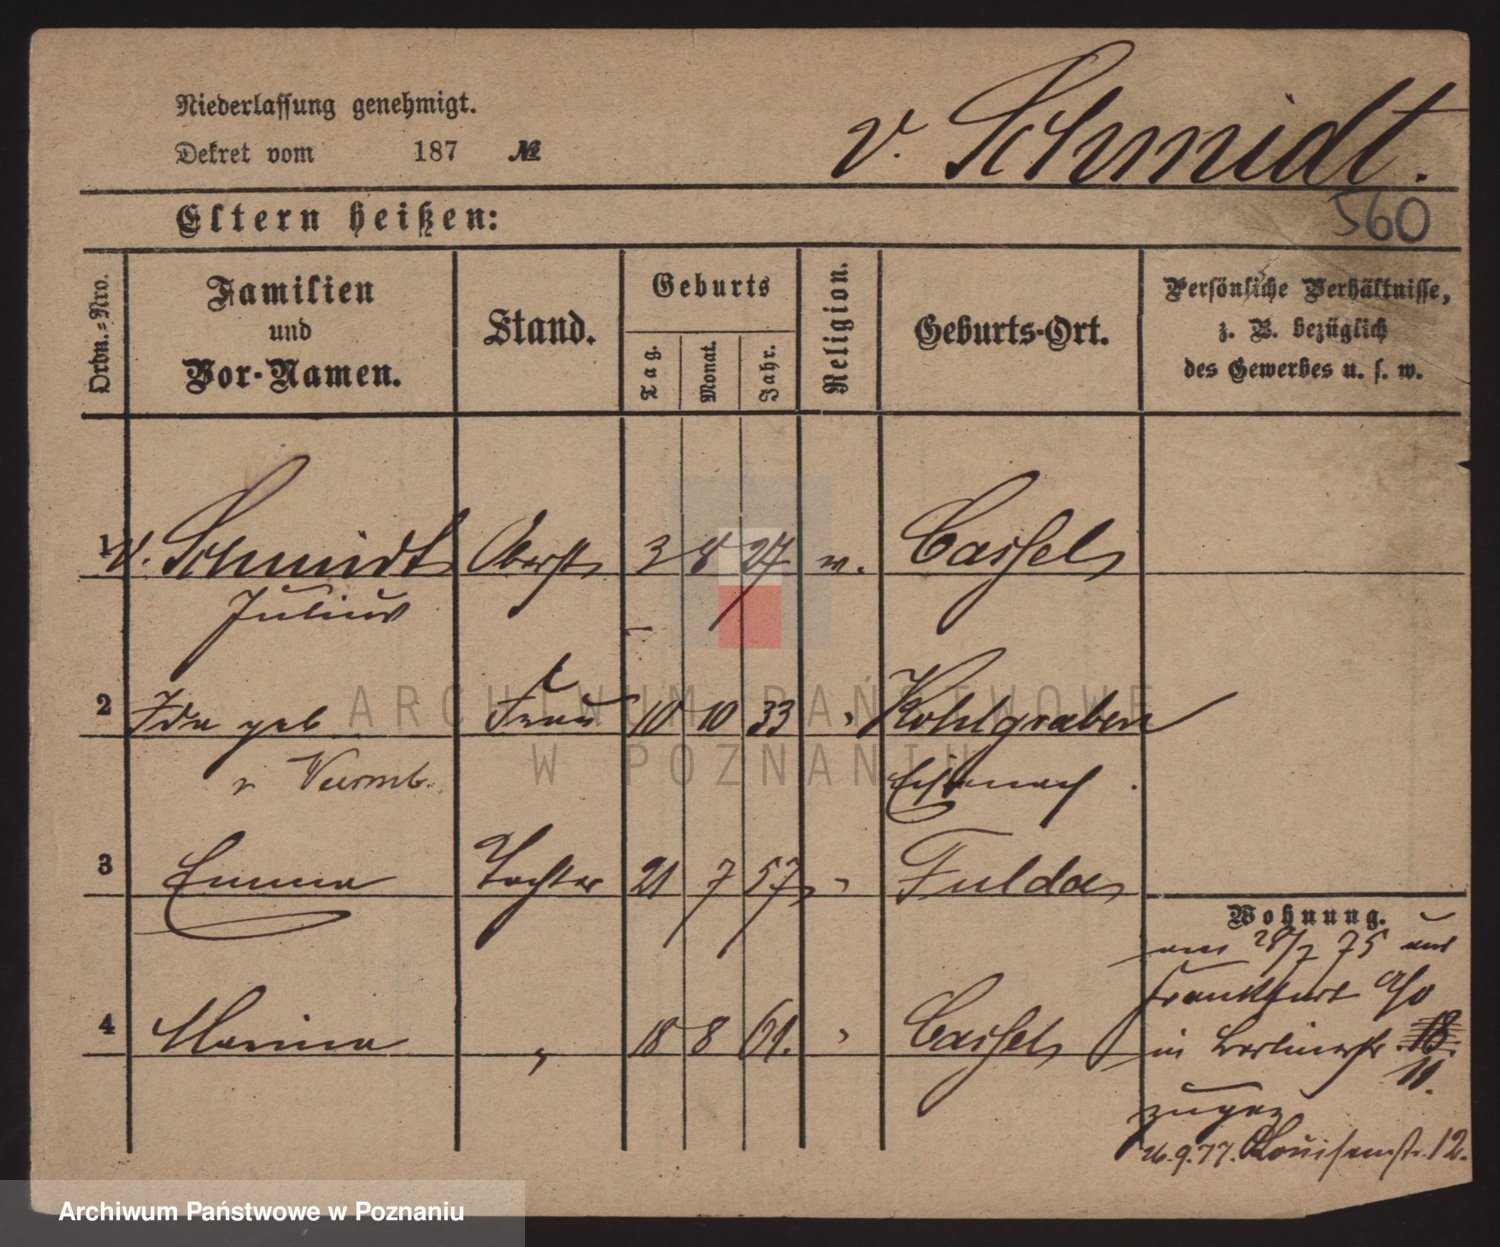 Niederlassung genehmigt.
Dekret vom 187 №
v. Schmidt.
Eltern heißen:
560
Ordn.-Nro.
Familien und Vor-Namen.
Stand.
Geburts
Tag.
Monat.
Jahr.
Religion.
Geburts-Ort.
Persönliche Verhältnisse,
z. B. bezüglich
des Gewerbes u. s. w.
1 v. Schmidt Oberst 3 8 27 Cassel
Julius
2 Ida geb Frau 10 10 33 " Kohlgraben
v Wurmb. Eisenach
3 Emma Tochter 21 7 57 " Fulda
Wohnung.
am 28/7 75 aus
Frankfurt a/o
4 Marina " 18 8 61. " Cassel
in Berlinerstr 18.
11.
zugez
26.9.77. Louisenstr. 12.
ARCHIWUM PAŃSTWOWE
W POZNANIU
Archiwum Państwowe w Poznaniu